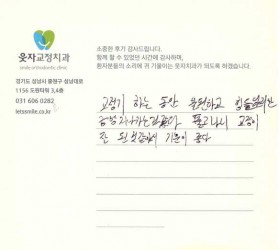 웃자교정치과
smile orthodontic clinic
경기도 성남시 중원구 성남대로
1156 도원타워 3,4층
031 606 0282
letssmile.co.kr
소중한 후기 감사드립니다.
함께 할 수 있었던 시간에 감사하며,
환자분들의 소리에 귀 기울이는 웃자교정치과가 되도록 하겠습니다.
교정기 하는 동안 불편하고
금방 지나가는
풀고나니 교정이
잘 된것같아서 기분이 좋다